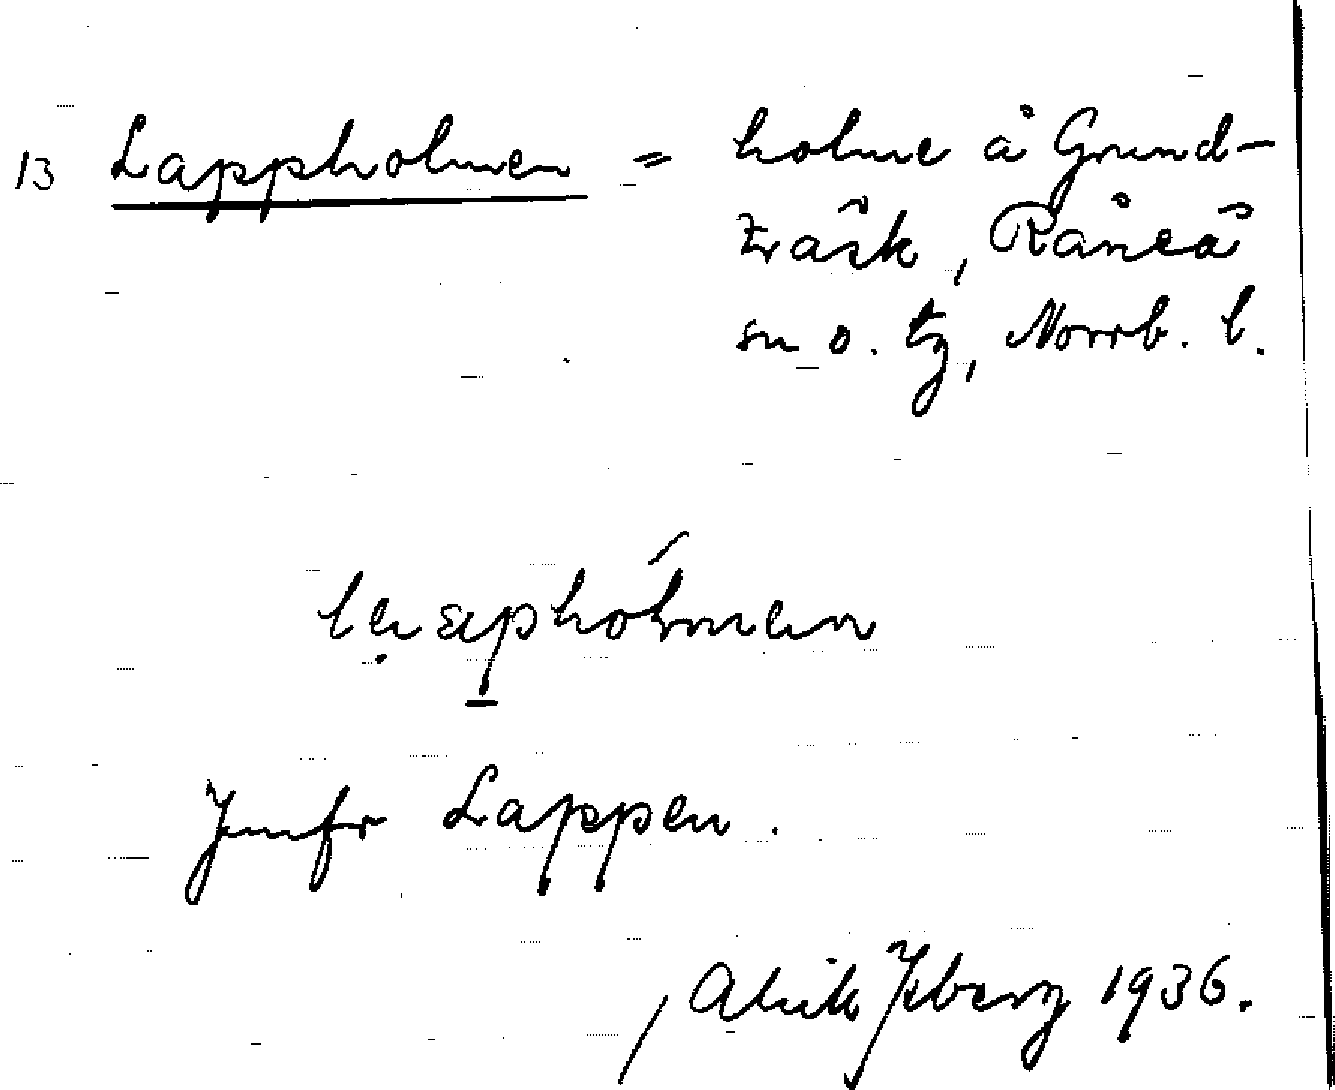 13 Lappholmen = holme å Grund-
träsk, Råneå
sn o. tg, Norrb. l.
Jmfr Lappen.
Alrik Ybery 1936.